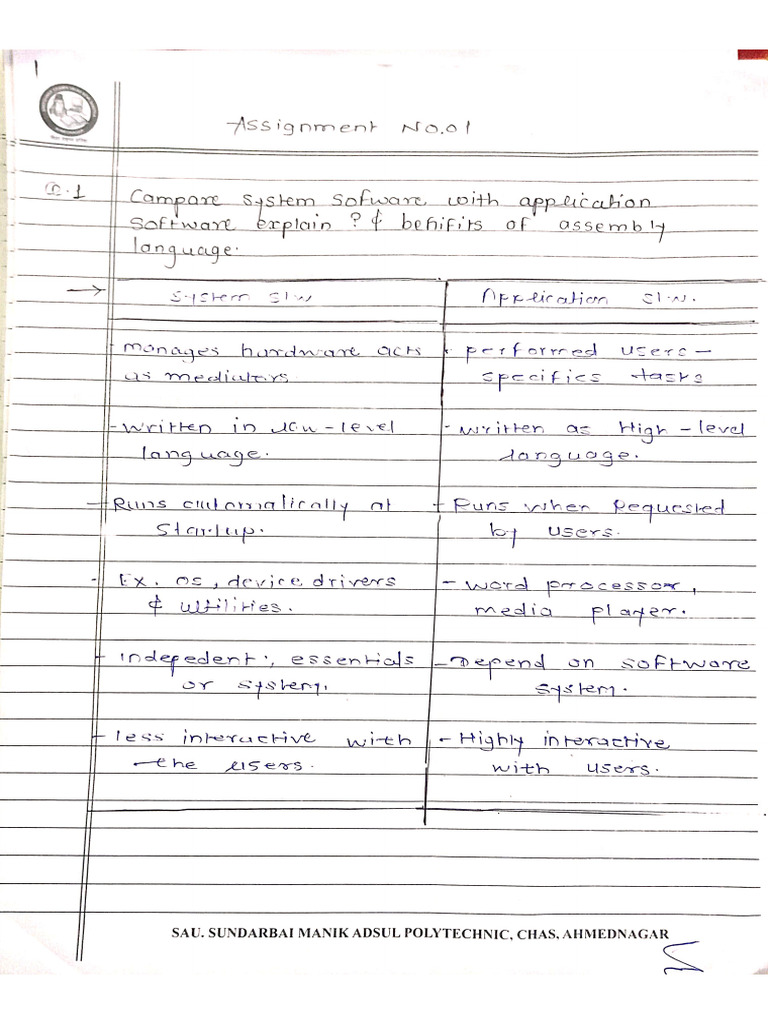 1
Assignment No.01
Q.1 Compare system sofware with application
software explain ? & behifits of assembly
language.
→ System S/W | Application S/W.
- manages hardware acts | - performed users-
as mediaters | specifics tasks
- written in low-level | - written as High-level
language. | language.
- Runs automatically at | - Runs when Requested
Startup. | by users.
- Ex. OS, device drivers | - word processor,
& utilities. | media player.
- indepedent:, essentials | - Depend on software
or system. | system.
- less interactive with | - Highly interactive
the users. | with users.
SAU. SUNDARBAI MANIK ADSUL POLYTECHNIC, CHAS, AHMEDNAGAR